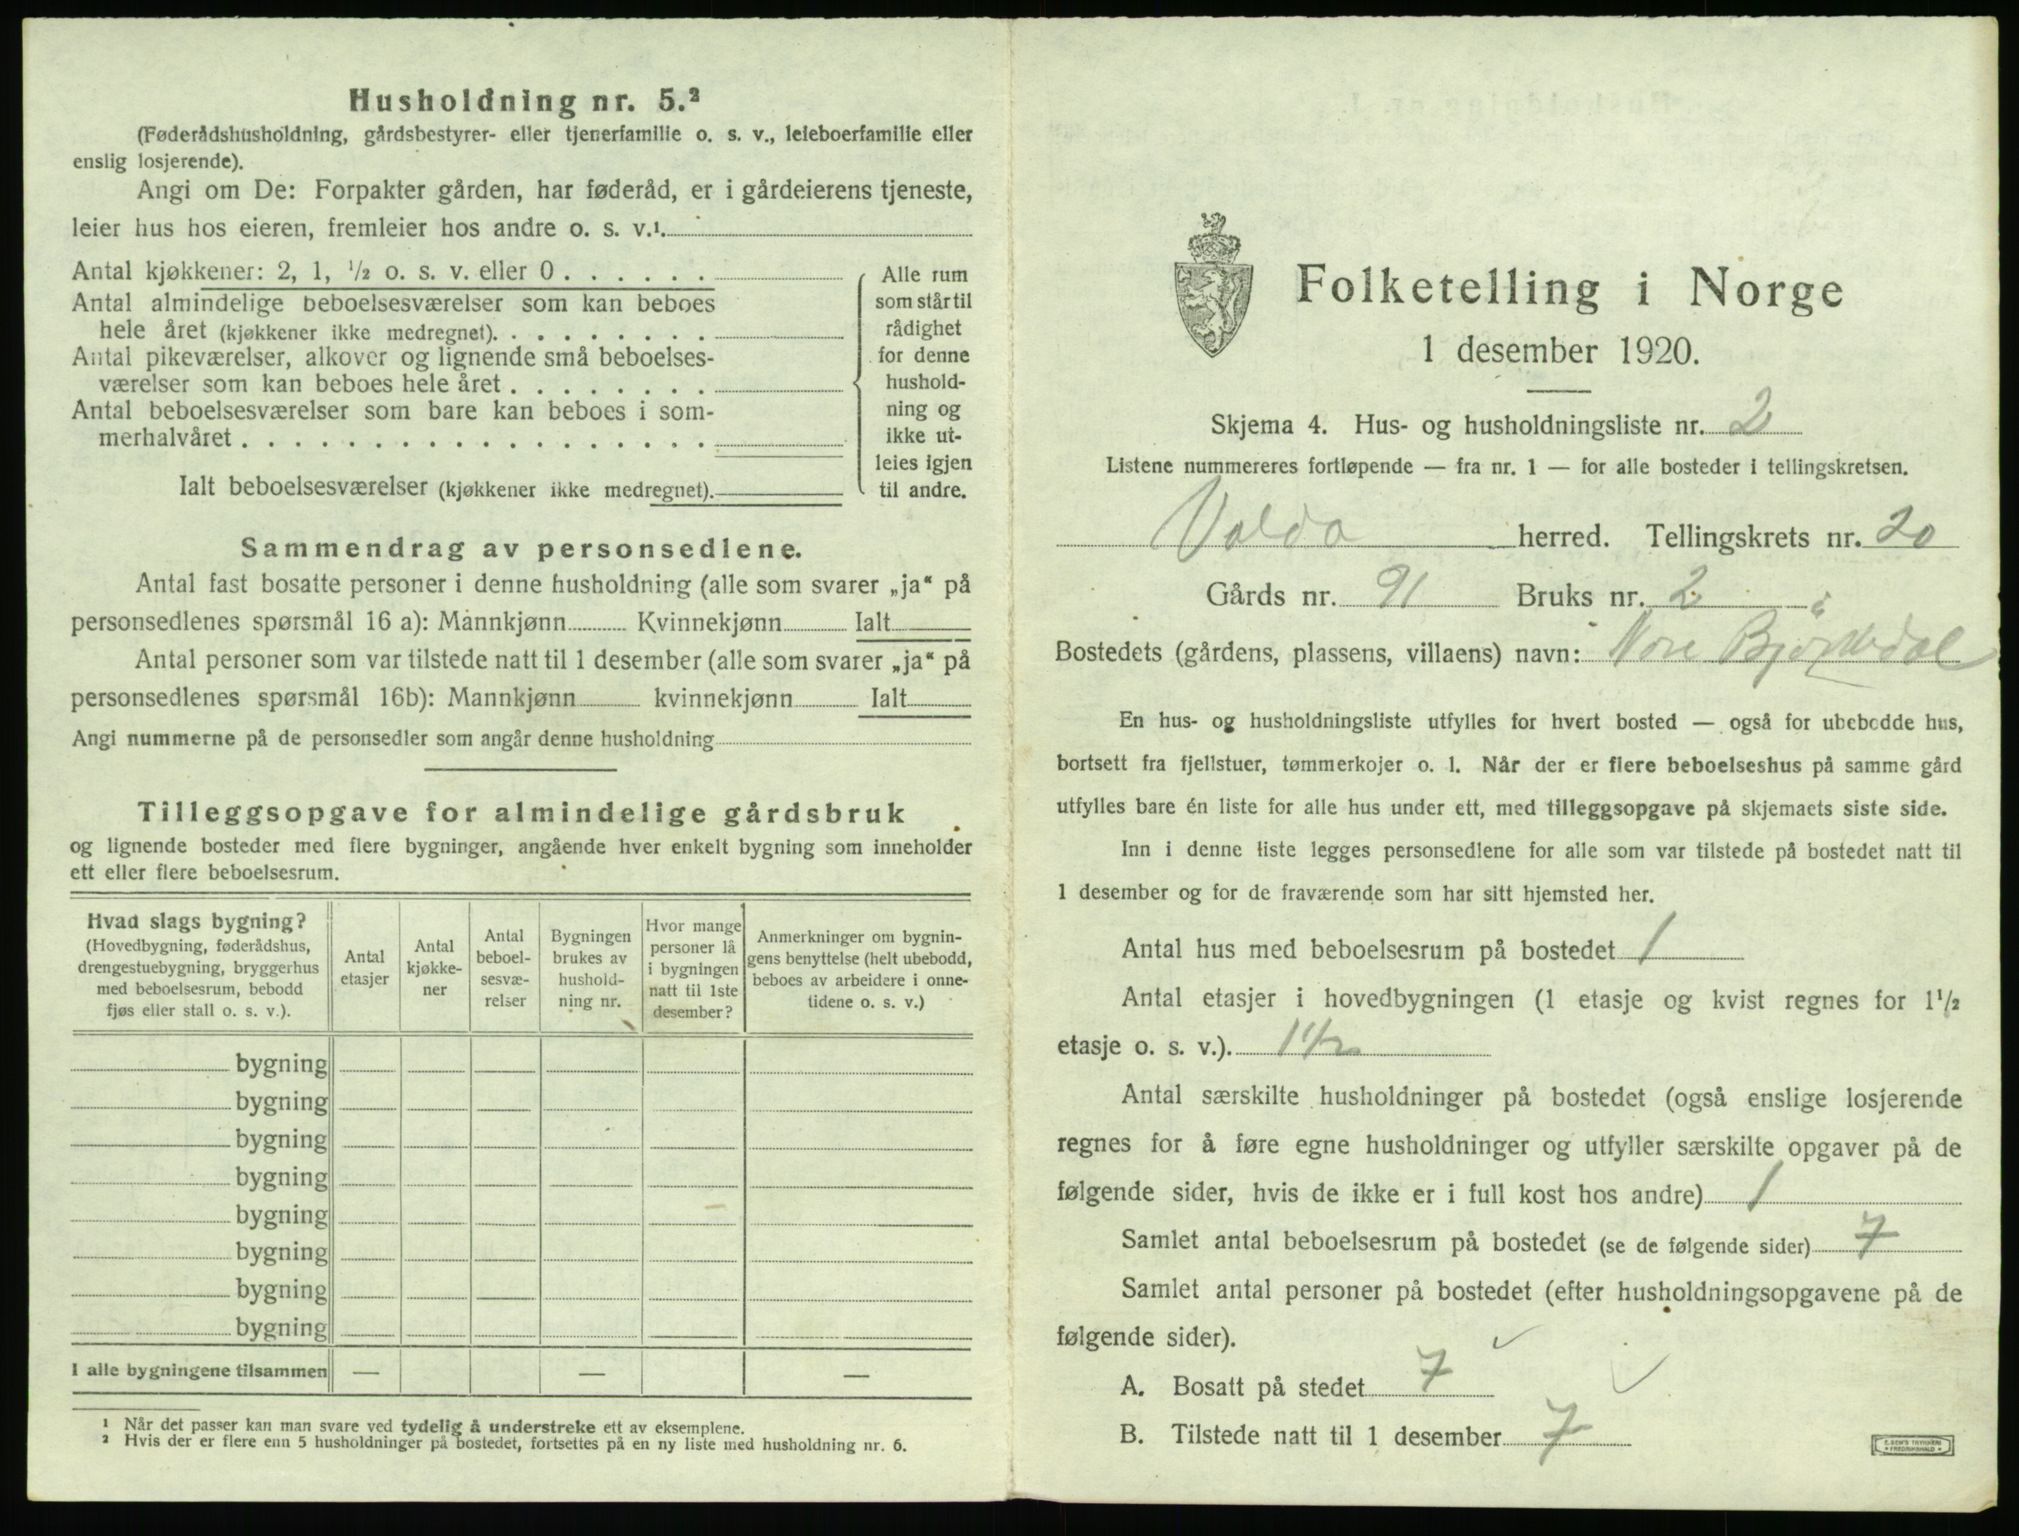 Husholdning nr. 5.²
(Føderådshusholdning, gårdsbestyrer- eller tjenerfamilie o. s. v., leieboerfamilie eller
enslig losjerende).
Angi om De: Forpakter gården, har føderåd, er i gårdeierens tjeneste,
leier hus hos eieren, fremleier hos andre o. s. v.¹.
Antal kjøkkener: 2, 1, ½ o. s. v. eller 0 . . . . . .
Antal almindelige beboelsesværelser som kan beboes
hele året (kjøkkener ikke medregnet). . . . . . . . .
Antal pikeværelser, alkover og lignende små beboelses-
værelser som kan beboes hele året . . . . . . . .
Antal beboelsesværelser som bare kan beboes i som-
merhalvåret . . . . . . . . . . . . . . . . . .
Ialt beboelsesværelser (kjøkkener ikke medregnet).
Alle rum
som står til
rådighet
for denne
hushold-
ning og
ikke ut-
leies igjen
til andre.
Sammendrag av personsedlene.
Antal fast bosatte personer i denne husholdning (alle som svarer „ja“ på
personsedlenes spørsmål 16 a): Mannkjønn Kvinnekjønn Ialt
Antal personer som var tilstede natt til 1 desember (alle som svarer „ja“ på
personsedlenes spørsmål 16b): Mannkjønn kvinnekjønn Ialt
Angi nummerne på de personsedler som angår denne husholdning
Tilleggsopgave for almindelige gårdsbruk
og lignende bosteder med flere bygninger, angående hver enkelt bygning som inneholder
ett eller flere beboelsesrum.
Hvad slags bygning?
(Hovedbygning, føderådshus,
drengestuebygning, bryggerhus
med beboelsesrum, bebodd
fjøs eller stall o. s. v.).
Antal
etasjer
Antal
kjøkke-
ner
Antal
beboel-
sesvæ-
relser
Bygningen
brukes av
hushold-
ning nr.
Hvor mange
personer lå
i bygningen
natt til 1ste
desember?
Anmerkninger om bygnin-
gens benyttelse (helt ubebodd,
beboes av arbeidere i onne-
tidene o. s. v.)
bygning
bygning
bygning
bygning
bygning
bygning
bygning
bygning
I alle bygningene tilsammen — — —
¹ Når det passer kan man svare ved tydelig å understreke ett av eksemplene.
² Hvis der er flere enn 5 husholdninger på bostedet, fortsettes på en ny liste med husholdning nr. 6.
Folketelling i Norge
1 desember 1920.
Skjema 4. Hus- og husholdningsliste nr. 2
Listene nummereres fortløpende — fra nr. 1 — for alle bosteder i tellingskretsen.
Volda herred. Tellingskrets nr. 20
Gårds nr. 91 Bruks nr. 2
Bostedets (gårdens, plassens, villaens) navn: Nore Bjørkedal
En hus- og husholdningsliste utfylles for hvert bosted — også for ubebodde hus,
bortsett fra fjellstuer, tømmerkojer o. l. Når der er flere beboelseshus på samme gård
utfylles bare én liste for alle hus under ett, med tilleggsopgave på skjemaets siste side.
Inn i denne liste legges personsedlene for alle som var tilstede på bostedet natt til
1 desember og for de fraværende som har sitt hjemsted her.
Antal hus med beboelsesrum på bostedet 1
Antal etasjer i hovedbygningen (1 etasje og kvist regnes for 1½
etasje o. s. v.). 1½
Antal særskilte husholdninger på bostedet (også enslige losjerende
regnes for å føre egne husholdninger og utfyller særskilte opgaver på de
følgende sider, hvis de ikke er i full kost hos andre) 1
Samlet antal beboelsesrum på bostedet (se de følgende sider) 7
Samlet antal personer på bostedet (efter husholdningsopgavene på de
følgende sider).
A. Bosatt på stedet 7
B. Tilstede natt til 1 desember 7
E. SEM'S TRYKKERI
FREDRIKSHALD